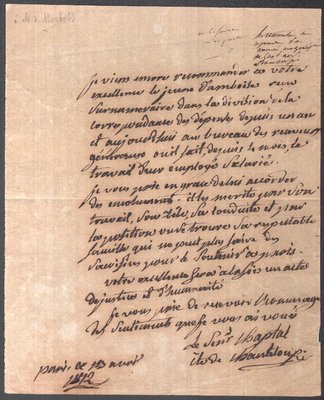 à M. de
je viens encore recommander à votre
excellence le jeune d'amboise reçu
surnuméraire dans la division de la
correspondance des dépenses depuis un an
et aujourd'hui au bureau des receveurs
généraux où il fait, depuis le mois le
travail d'un employé salarié.
je vous prie en grace de lui accorder
des émoluments. il les mérite par son
travail, son zèle, sa conduite et par
la position où se trouve sa respectable
famille qui ne peut plus faire des
sacrifices pour le soutenir à paris.
votre excellence fera à la fois un acte
de justice et d'humanité
je vous prie de recevoir l'hommage
des sentiments que je vous ai voué
le Sen.r Chaptal
Cte de Chanteloup
paris ce 13 avril
1812